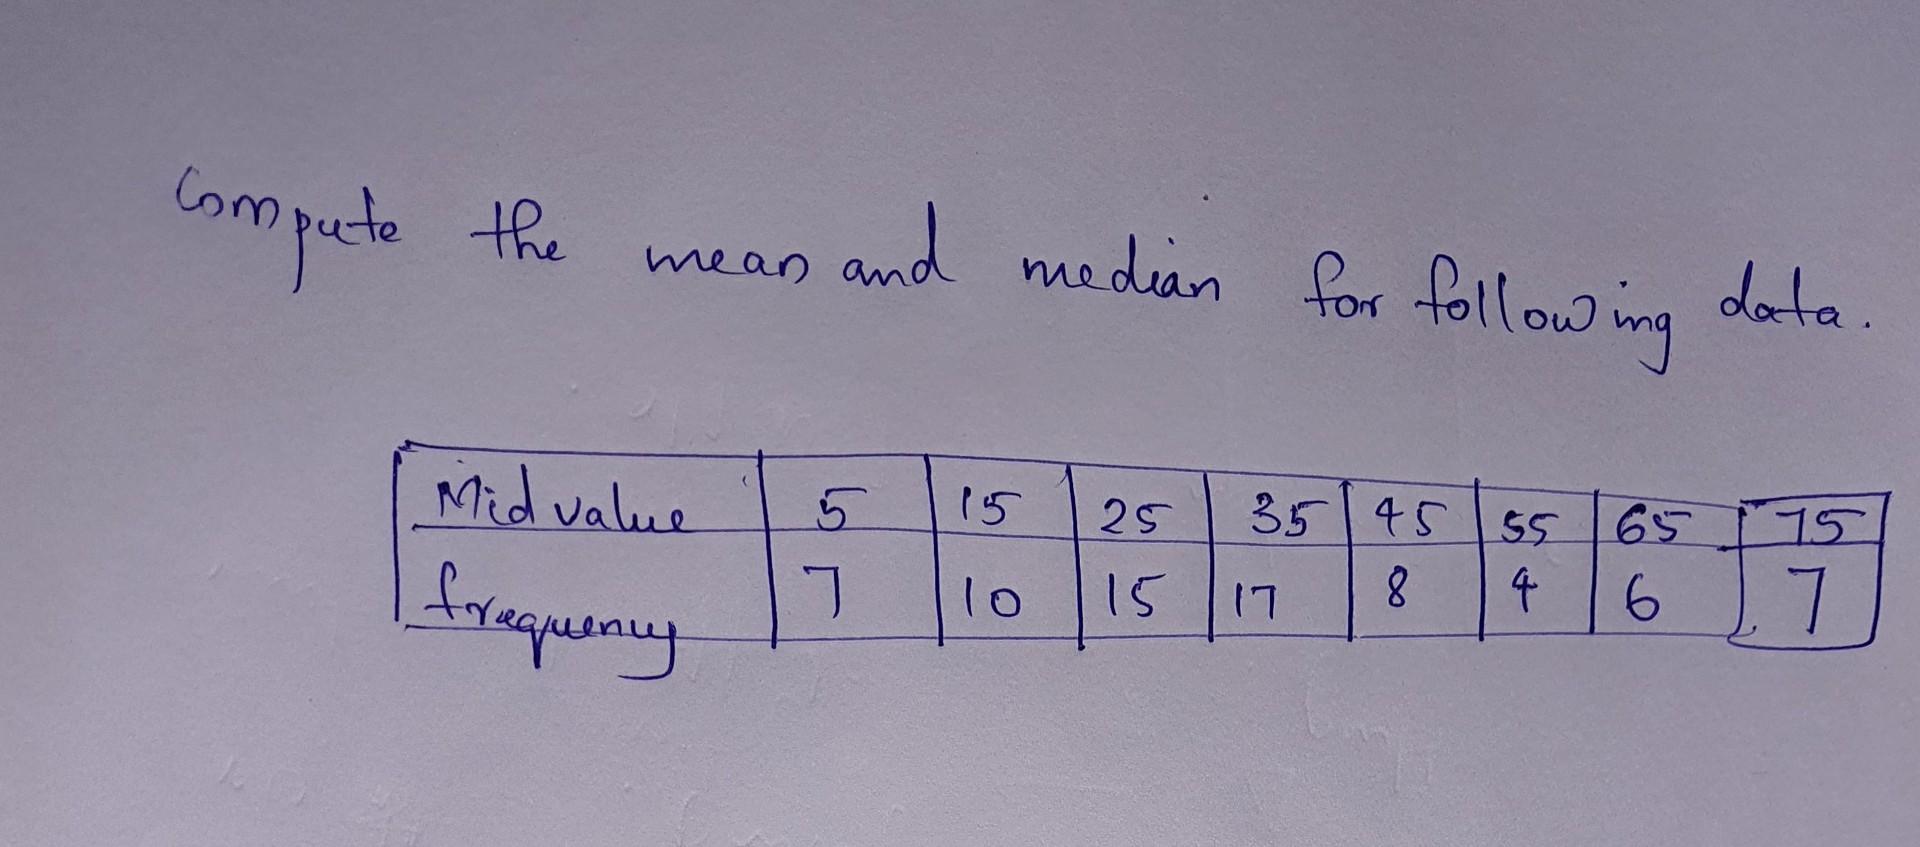 Compute the mean and median for following data.
Mid value 5 15 25 35 45 55 65 75
frequency 7 10 15 17 8 4 6 7